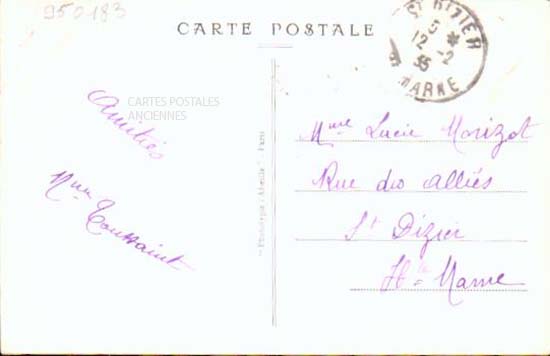 950183
CARTE POSTALE
ST DIZIER
5 *
12 - 2
35
MARNE
CARTES POSTALES
ANCIENNES
Amitiés
Mme Toussaint
"Phototypie Abeille" - Paris
Mme Lucie Morizot
Rue des Alliés
St Dizier
Hte Marne